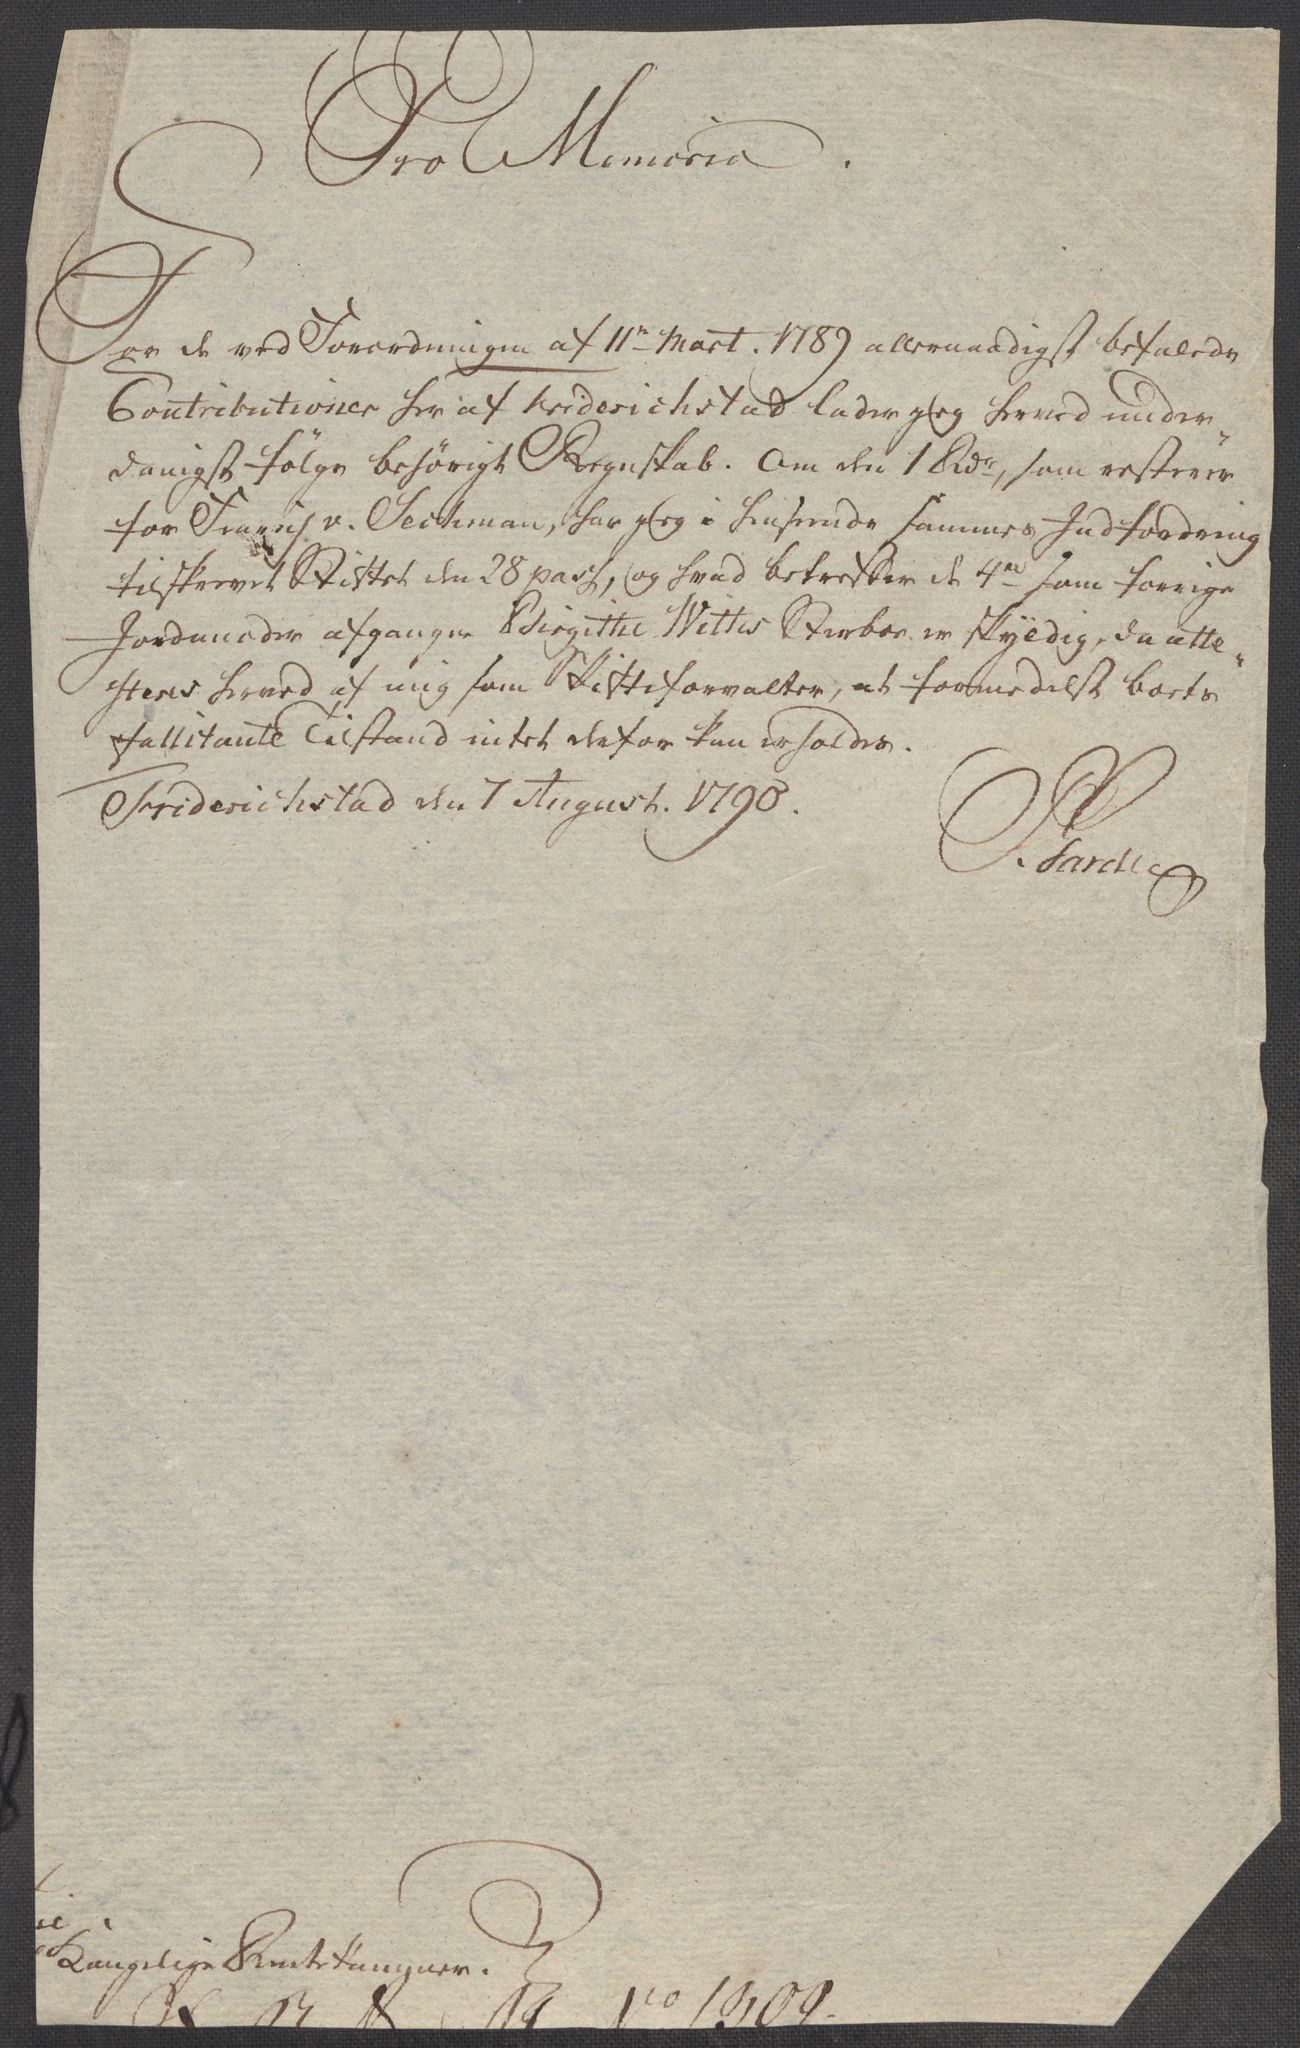 Pro Memoria.
For de ved Forordningen af 11te Mart. 1789 allernaadigst befalede
Contributioner her af Friderichstad lader jeg herved under-
danigst følge behörigt Regnskab. Om den 1 Rdr, som resterer
for v. Seckman, har jeg i henseende sammes Indfordring
tilskrevet Stiftet den 28 pass, og hvad betreffer de 4 som forrige
Jordmoder afgangne Birgithe Witthes Sterboe er skyldig, da atte-
steres herved af mig som Skifteforvalter, at formedelst boets
fallitante Tilstand intet derfor kan erholdes.
Friderichstad den 7 August. 1790.
Kongelige Rentekammer.
No 1309.